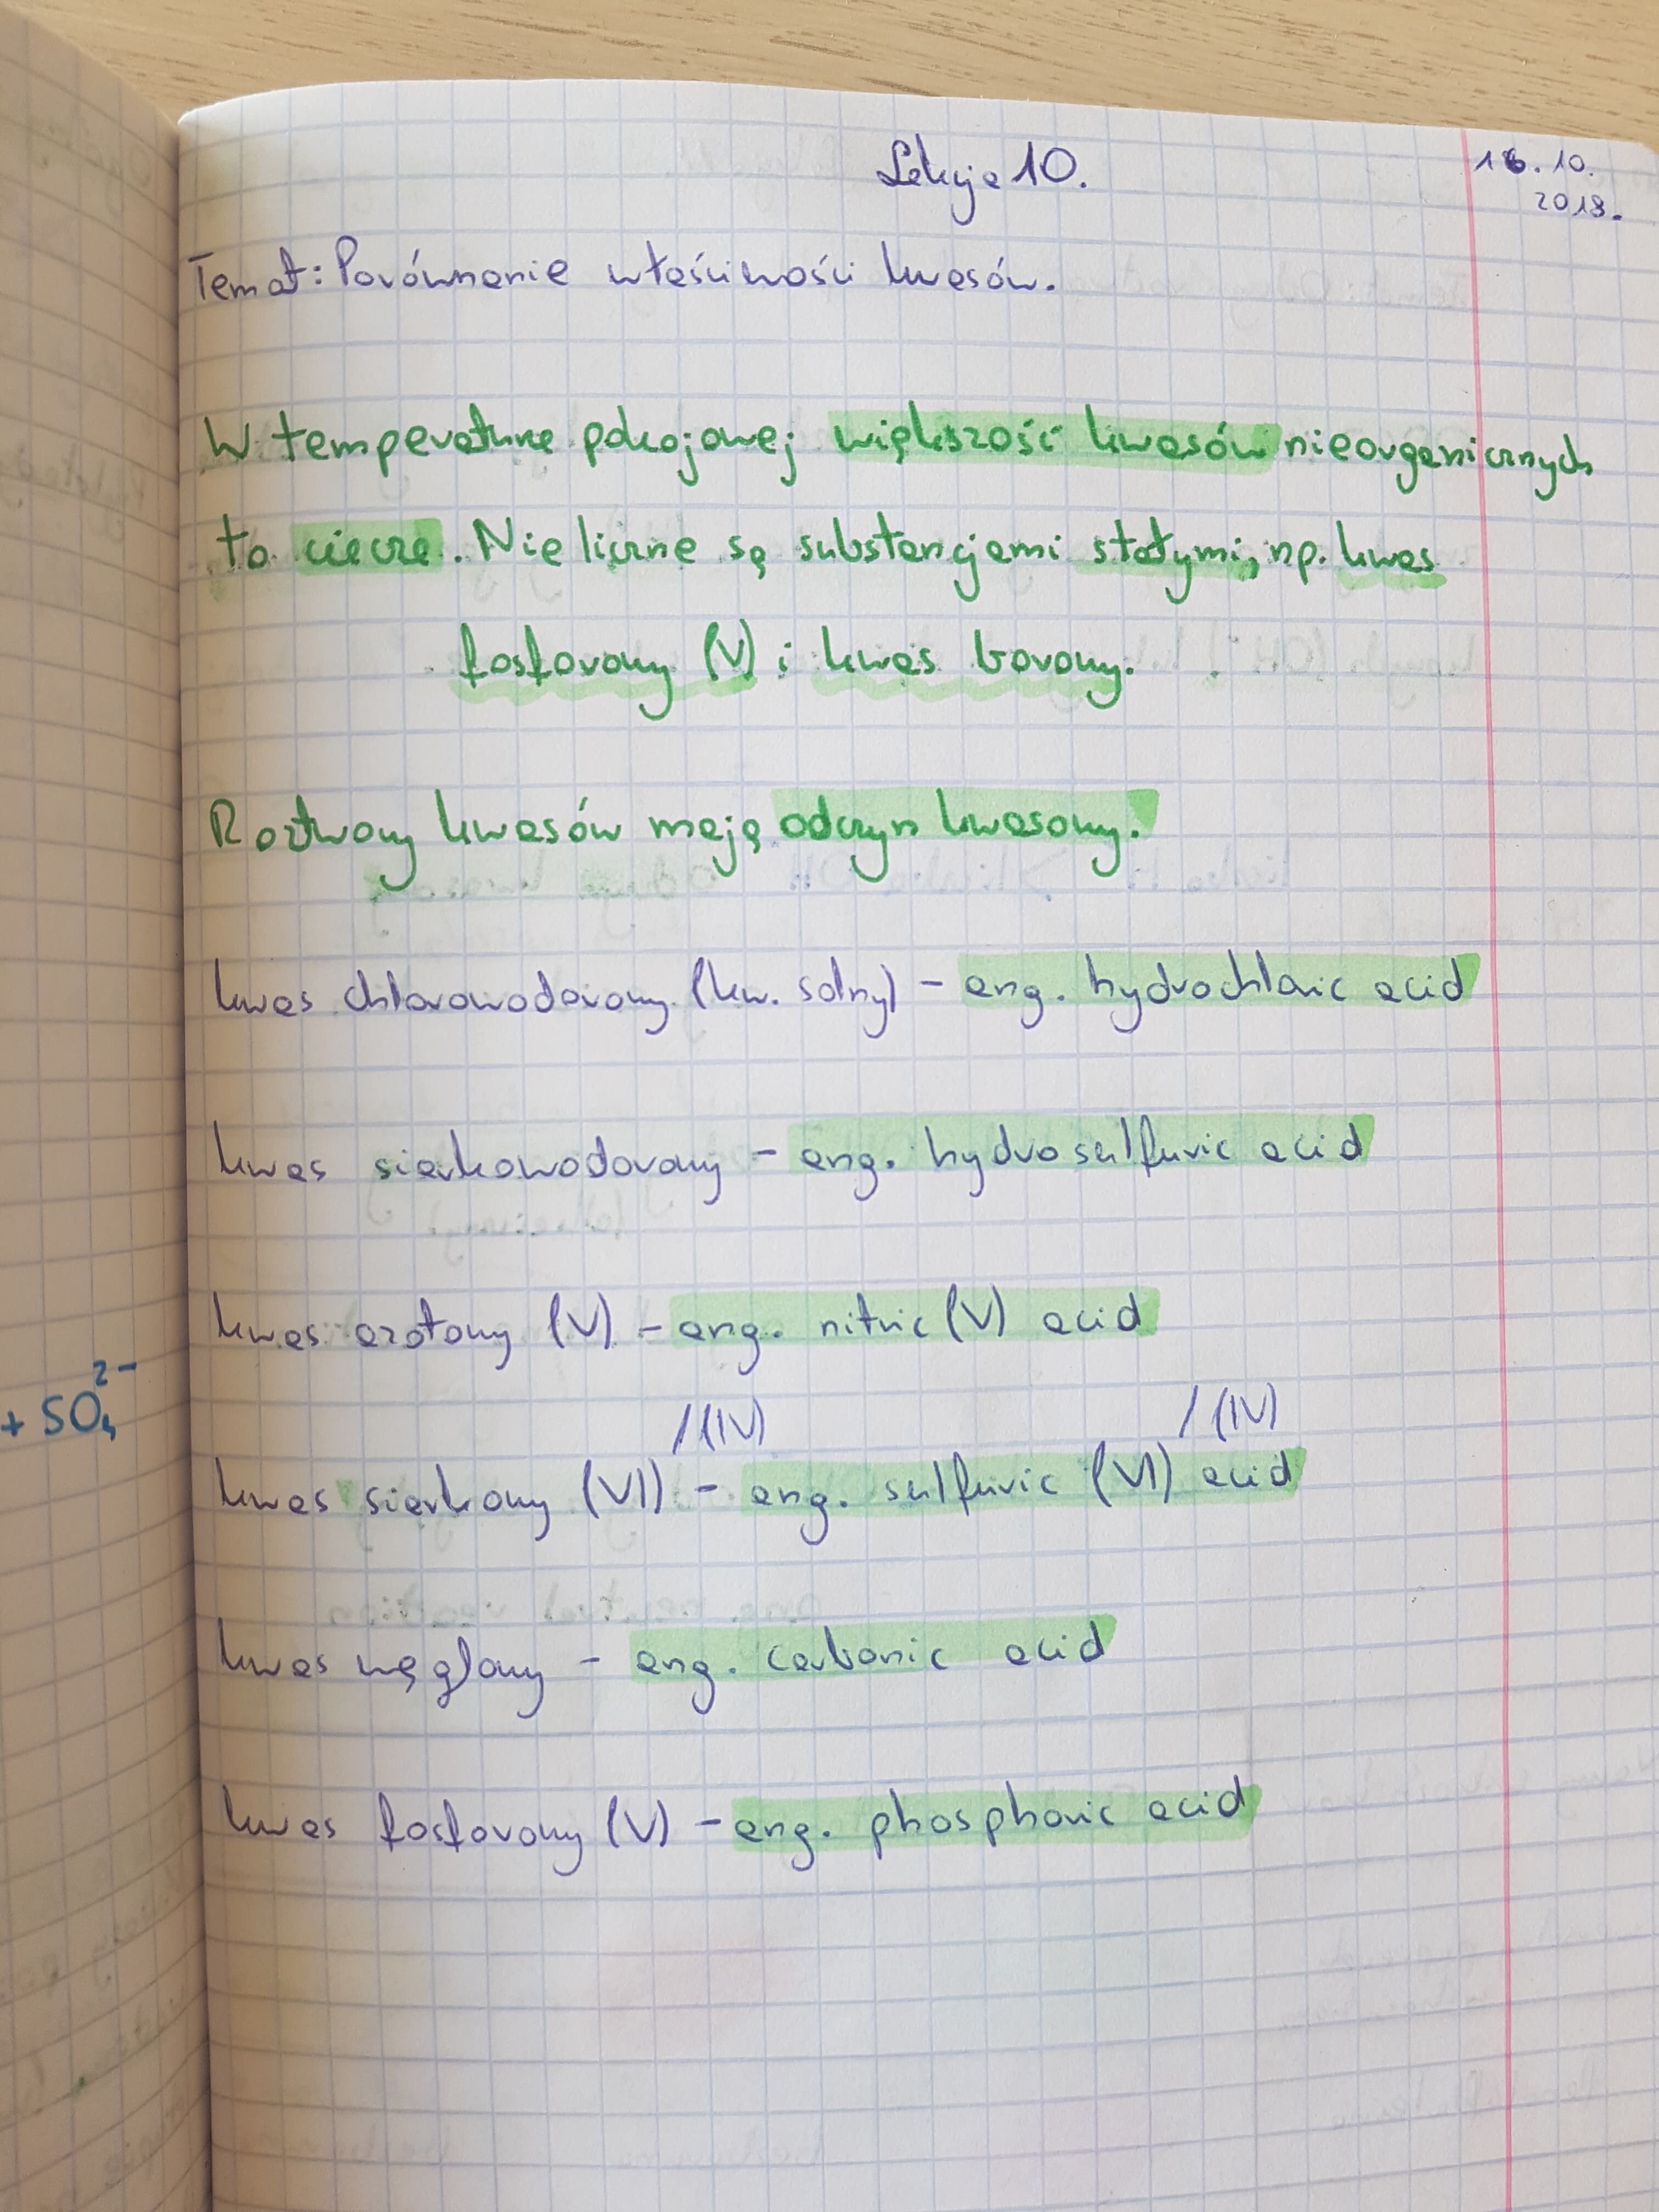 Lekcja 10.
16.10.
2018.
Temat: Porównanie właściwości kwasów.
W temperaturze pokojowej większość kwasów nieorganicznych
to ciecze. Nieliczne są substancjami stałymi, np. kwas
fosforowy (V) i kwas borowy.
Roztwory kwasów mają odczyn kwasowy.
kwas chlorowodorowy (kw. solny) - ang. hydrochloric acid
kwas siarkowodorowy - ang. hydrosulfuric acid
kwas azotowy (V) - ang. nitric (V) acid
+ SO₄²⁻
/(IV) /(IV)
kwas siarkowy (VI) - ang. sulfuric (VI) acid
kwas węglowy - ang. carbonic acid
kwas fosforowy (V) - ang. phosphoric acid